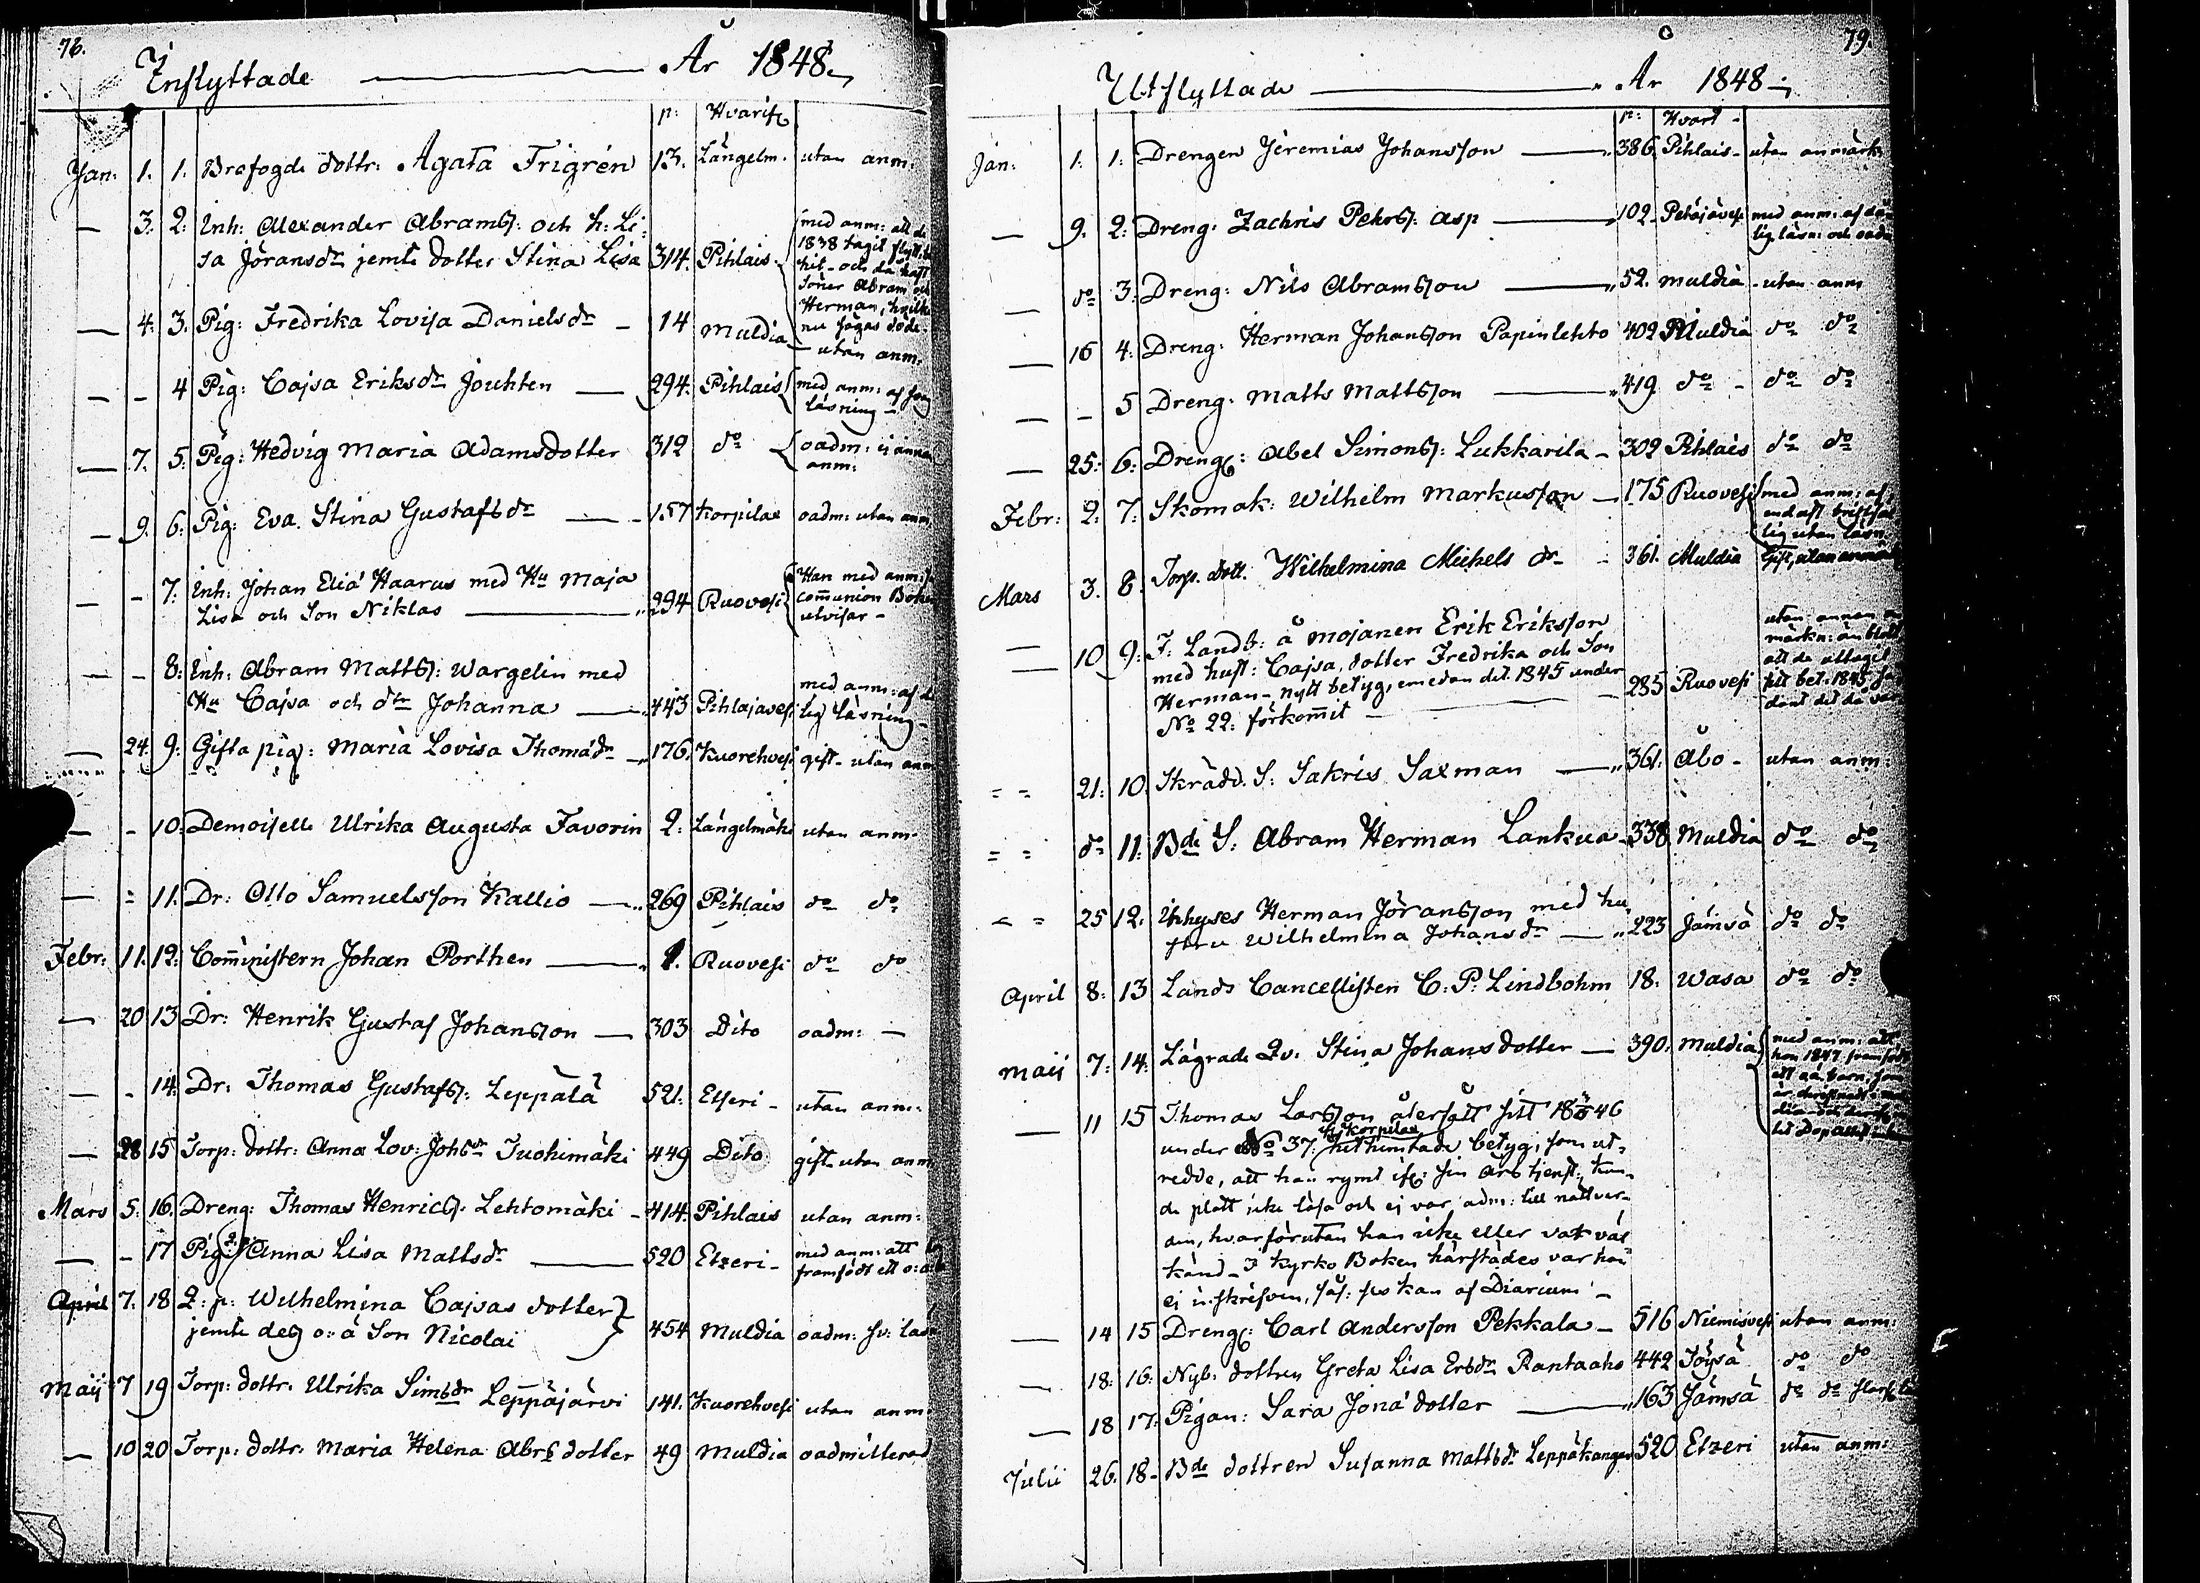 76.
Inflyttade — År 1848.
p: Hvarifr.
Jan: 1. 1. Brofogde dottr: Agata Frigrén 13. Längelm. utan anm:
— 3. 2. Inh: Alexander Abramss: och h: Li-
sa Jöransdr jemte dotter Stina Lisa 314. Pihlais.
med anm: att de
1838 tagit flyttb
hit - och då haft
Söner Abram och
Herman, hvilka
nu sägas döde.
— 4. 3. Pig: Fredrika Lovisa Danielsdr — 14 Muldia — utan anm:
— - 4 Pig: Cajsa Eriksdr Jouhten — 294. Pihlais med anm: af
läsning -
— 7. 5. Pig: Hedvig Maria Adamsdotter 312 do oadm: ej annan
anm:
— 9. 6. Pig: Eva Stina Gustafsdr — 157 Korpilax oadm: utan anm
— - 7. Inh: Johan Eliä Haarus med Hu Maja
Lisa och Son Niklas — 294 Ruovesi
Han med anm:
communion Boken
utvisar -
— - 8. Inh: Abram Matts: Wargelin med
Hu Cajsa och dtr Johanna — 443 Pihlajavesi med anm: af
lig läsning -
— 24. 9. Gifta pig: Maria Lovisa Thomädr — 176. Kuorehvesi gift - utan anm
— - 10. Demoiselle Ulrika Augusta Favorin 2. Längelmäki utan anm -
— - 11. Dr: Otto Samuelsson Kallio — 269 Pihlais do do
Febr: 11. 12. Comministern Johan Porthen — 1. Ruovesi do do
— 20 13 Dr: Henrik Gustaf Johansson — 303 Dito oadm: —
- - 14. Dr: Thomas Gustafs: Leppälä 521. Etseri - utan anm:
— 28 15 Torp: dottr: Anna Lov: Johsdr Tuohimäki 449 Dito gift utan anm
Mars 5. 16. Dreng: Thomas Henrics: Lehtomäki - 414. Pihlais utan anm:
— - 17 Pig: Anna Lisa Mattsdr — 520 Etzeri - med anm: att
framfödt ett o: ä
April 7. 18 Q: p: Wilhelmina Cajsas dotter
jemte dess o: ä Son Nicolai 454 Muldia oadm: sv: läsn
Maij 7 19 Torp: dottr: Ulrika Simsdr Leppäjärvi 141. Kuorehvesi utan anm:
— 10 20 Torp: dottr: Maria Helena Abrs dotter 49 Muldia oadmitterad
79.
Utflyttade — År 1848
p: Hvart -
Jan: 1. 1. Drengen Jeremias Johansson — 386. Pihlais - utan anmärk
— 9. 2. Dreng: Zachris Pehrs: Asp — 102. Petäjävesi med anm: af då
lig läsn: och oadm
— do 3. Dreng: Nils Abramsson — 52. Muldia - utan anm
— 16 4. Dreng: Herman Johansson Papinlehto 402 Muldia do do
— - 5 Dreng: Matts Mattsson — 419. do - do do
— 25: 6: Dreng: Abel Simons: Lukkarila - 302 Pihlais do do
Febr: 2. 7. Skomak: Wilhelm Markusson — 175 Ruovesi med anm: af
endast
lig utan läsn
Mars 3. 8. Torp. dott. Wilhelmina Michels dr - 361. Muldia Gift, utan anm
— 10 9. F. Landb: å Mojanen Erik Eriksson
med hust: Cajsa, dotter Fredrika och Son
Herman - nytt betyg, emedan det 1845 under
No 22: förkommit — 285 Ruovesi
utan annan
märkn: än blott
att de uttagit
sitt bet. 1845 så
dant det då var
= = 21: 10. Skrädd. S: Sakris Saxman — 361. Åbo - utan anm:
= = do 11. Bde S: Abram Herman Lankua - 338. Muldia do do
= = 25 12. Inhyses Herman Jöransson med hu
stru Wilhelmina Johansdr — 223 Jämsä do do
April 8: 13 Lands Cancellisten C: P: Lindbohm 18. Wasa do do
Maij 7. 14. Lägrade Qv: Stina Johansdotter — 390. Muldia
med anm: att
hon 1847 framfödt
ett oä barn, som
är
— 11 15 Thomas Larsson återfått sitt 1846
fr Korpilax
under No 37: hithemtade betyg, som ut-
redde, att han rymt ifr: sin års tjenst, kun-
de platt icke läsa och ej var adm: till nattvar-
den, hvarförutan han icke eller var väl
känd - I kyrko Boken härstädes var han
ej inskrifven, kan af Diarium -
— 14 15 Dreng: Carl Andersson Pekkala - 516 Niemisvesi utan anm:
— 18: 16. Nyb. dottren Greta Lisa Ersdr Rantaaho 442 Töysä do do
— 18 17: Pigan: Sara Jonä dotter — 163 Jämsä do do
Julii 26. 18 - Bde dottren Susanna Mattsdr Leppäkangas 520 Etzeri utan anm: